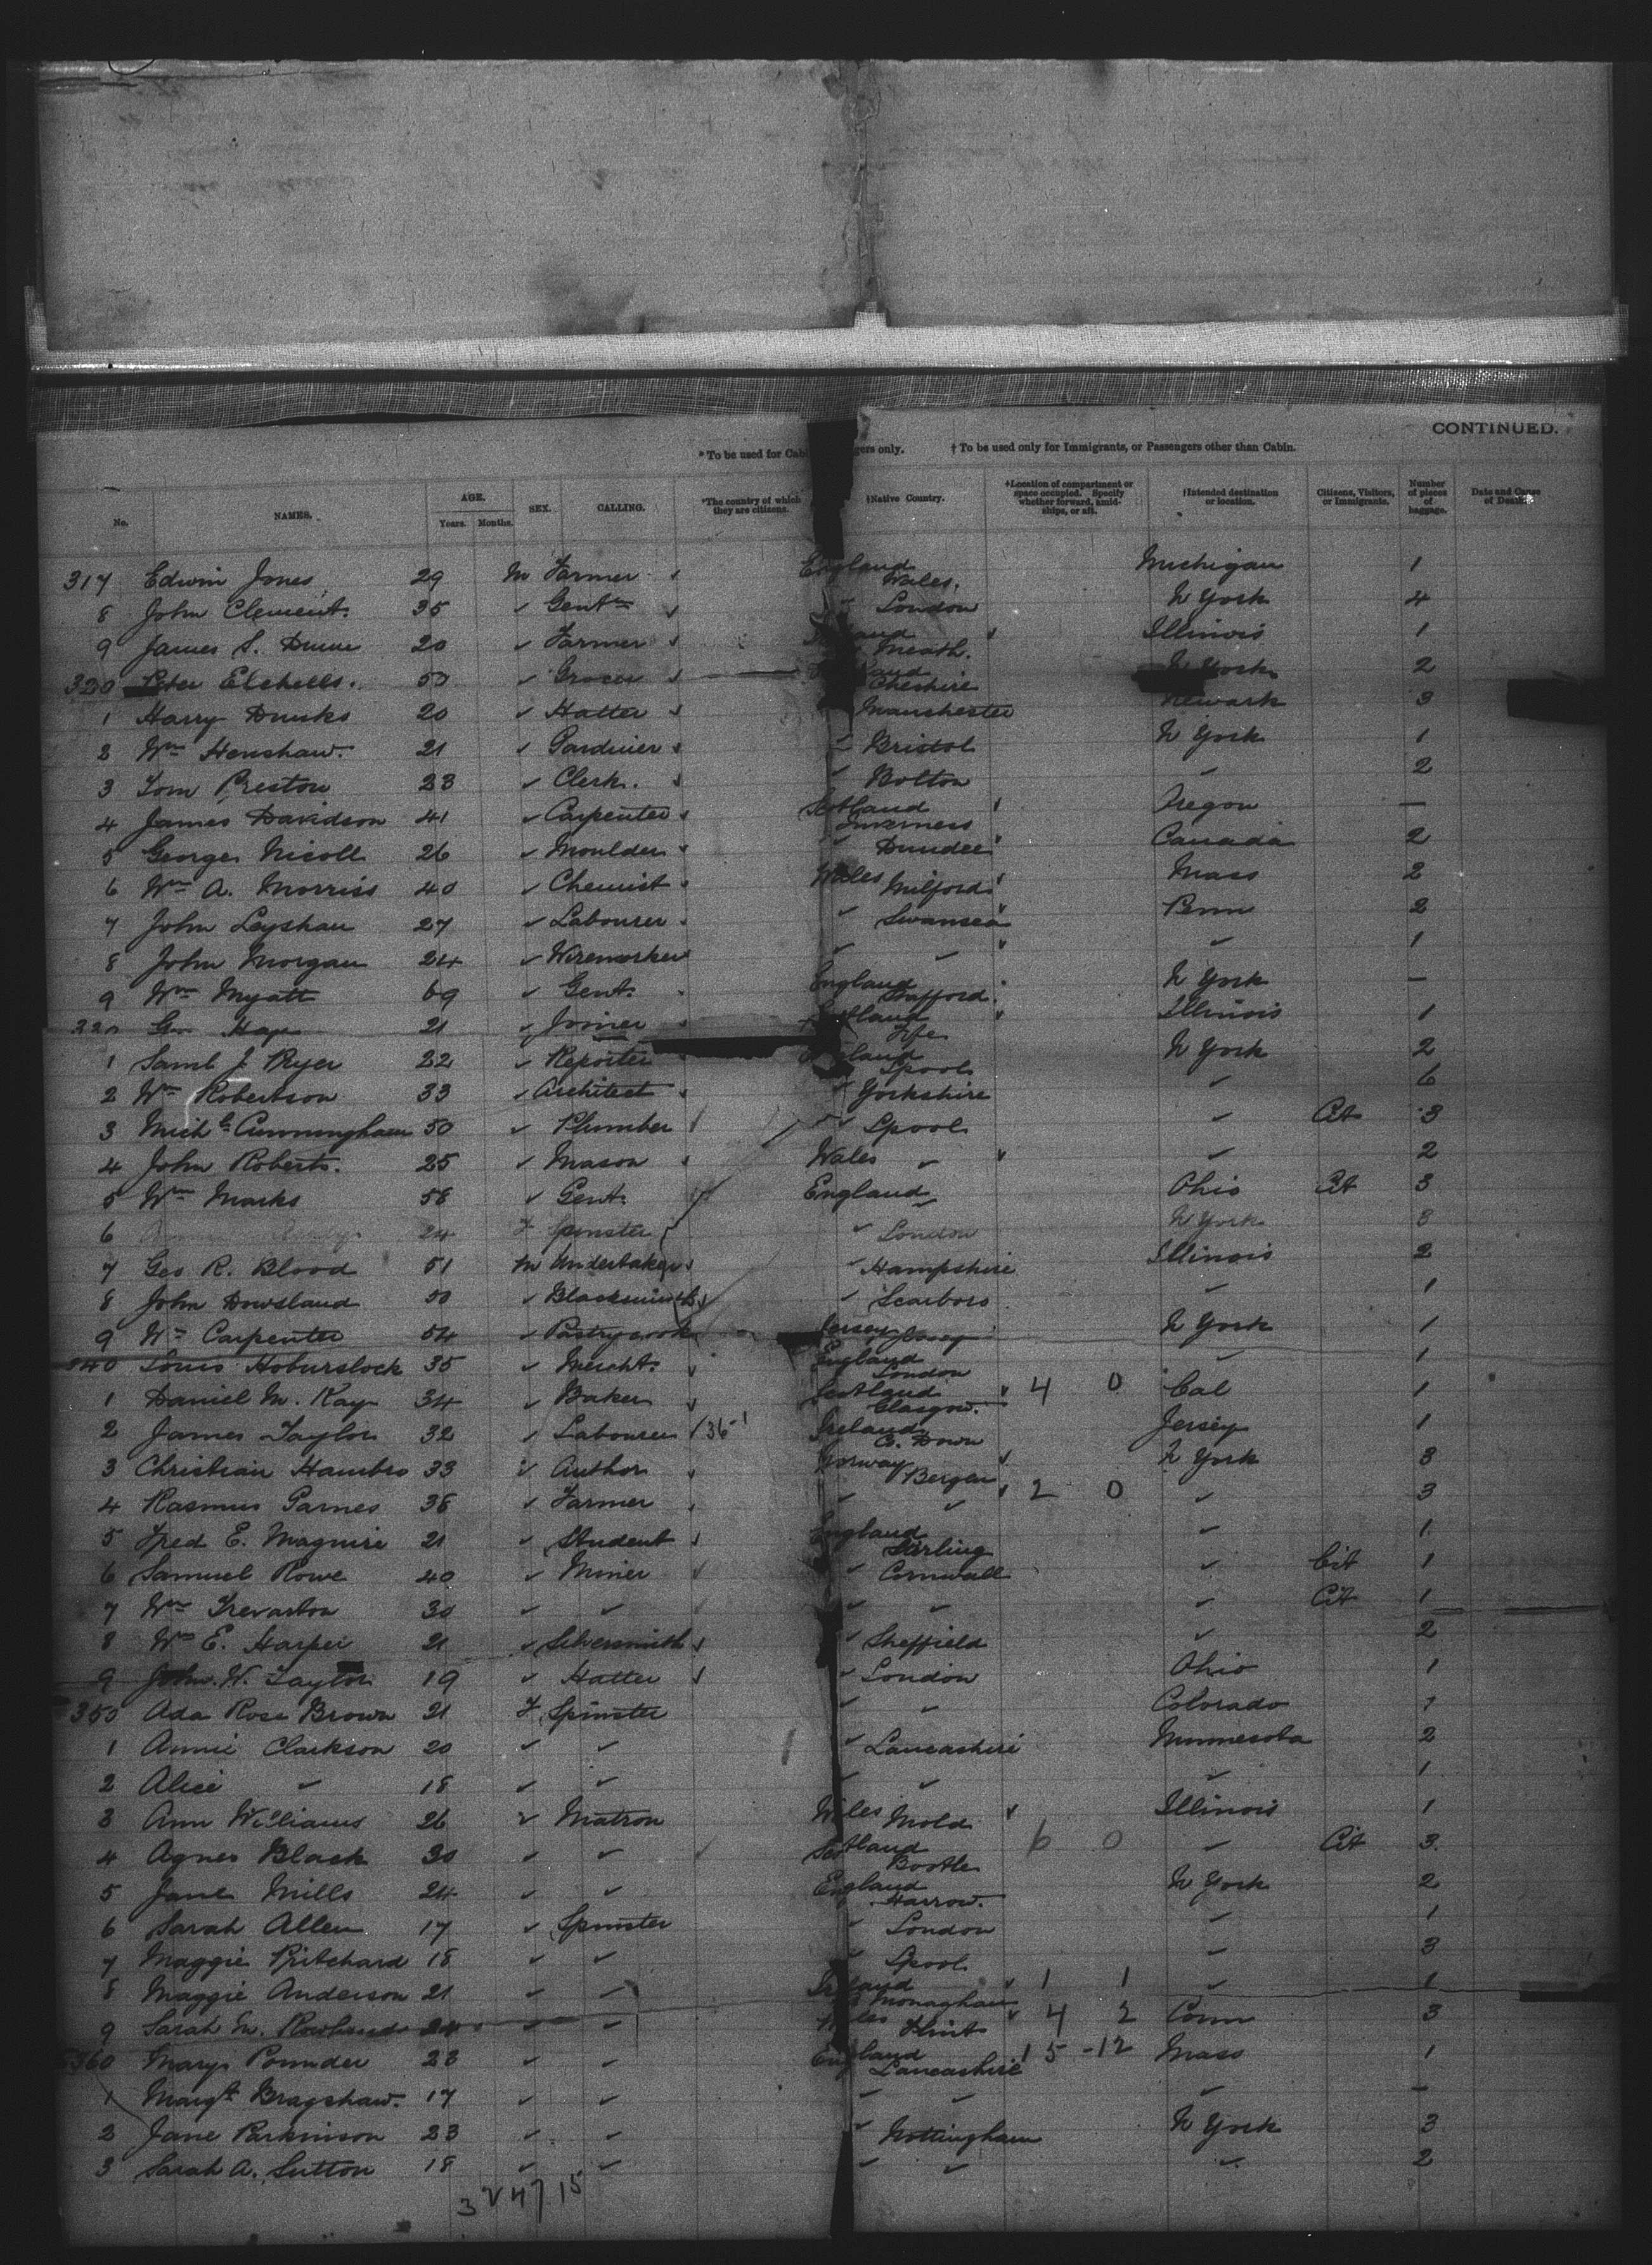 CONTINUED.
*To be used for Cabi gers only. † To be used only for Immigrants, or Passengers other than Cabin.
No. NAMES. AGE. Years. Months. SEX. CALLING. *The country of which they are citizens. †Native Country. †Location of compartment or space occupied. Specify whether forward, amidships, or aft. †Intended destination or location. Citizens, Visitors, or Immigrants. Number of pieces of baggage. Date and Cause of Death.
317 Edwin Jones 29 M Farmer England Wales. Michigan 1
8 John Clement. 35 ✓ Gentn ✓ London N York 4
9 James S. Dunn 20 ✓ Farmer Meath. Illinois 1
320 Peter Etchells. 50 ✓ Grocer Cheshire N York 2
1 Harry Dunks 20 ✓ Hatter Manchester Newark 3
2 Wm Henshaw. 21 ✓ Gardinier ✓ Bristol N York 1
3 Tom Preston 23 ✓ Clerk. ✓ Bolton ✓ 2
4 James Davidson 41 ✓ Carpenter Scotland Inverness Oregon —
5 George Nicoll 26 ✓ Moulder ✓ Dundee Canada 2
6 Wm A. Morriss 40 ✓ Chemist Wales Milford Mass 2
7 John Leyshan 27 ✓ Labourer ✓ Swansea Penn 2
8 John Morgan 24 ✓ Wireworker ✓ ✓ ✓ 1
9 Wm Myatt 69 ✓ Gent. England Stafford. N York —
Geo Hay 21 ✓ Joiner Scotland Fife Illinois 1
1 Saml J Pryer 22 ✓ Reporter England Lpool N York 2
2 Wm Robertson 33 ✓ Architect ✓ Yorkshire ✓ 6
3 Michl Cunningham 50 ✓ Plumber ✓ Lpool ✓ Cit 3
4 John Roberts. 25 ✓ Mason Wales ✓ ✓ 2
5 Wm Marks 58 ✓ Gent. England ✓ Ohio Cit 3
6 24 F Spinster ✓ London N York 3
7 Geo R. Blood 51 M Undertaker ✓ Hampshire Illinois 2
8 John Dowsland 50 ✓ Blacksmith ✓ Scarboro ✓ 1
9 Wm Carpenter 54 ✓ Pastrycook Jersey Jersey N York 1
340 Louis Hoburslock 35 ✓ Mercht. England London ✓ 1
1 Daniel M. Kay 34 ✓ Baker Scotland Glasgow. 4 0 Cal 1
2 James Taylor 32 ✓ Labourer 36-1 Ireland Co. Down Jersey 1
3 Christian Hambro 33 ✓ Author Norway Bergen N York 3
4 Rasmus Garnes 38 ✓ Farmer ✓ ✓ 2 0 ✓ 3
5 Fred E. Maguire 21 ✓ Student England Stirling ✓ 1
6 Samuel Rowe 40 ✓ Miner ✓ Cornwall ✓ Cit 1
7 Wm Trevarton 30 ✓ ✓ ✓ ✓ ✓ Cit 1
8 Wm E. Harper 21 ✓ Silversmith ✓ Sheffield ✓ 2
9 John W. Taylor 19 ✓ Hatter ✓ London Ohio 1
350 Ada Rose Brown 21 F Spinster ✓ ✓ Colorado 1
1 Annie Clarkson 20 ✓ ✓ ✓ Lancashire Minnesota 2
2 Alice ✓ 18 ✓ ✓ ✓ ✓ ✓ 1
3 Ann Williams 26 ✓ Matron Wales Mold Illinois 1
4 Agnes Black 30 ✓ ✓ Scotland Bootle 6 0 ✓ Cit 3
5 Jane Mills 24 ✓ ✓ England Harrow. N York 2
6 Sarah Allen 17 ✓ Spinster ✓ London ✓ 1
7 Maggie Pritchard 18 ✓ ✓ ✓ Lpool ✓ 3
8 Maggie Anderson 21 ✓ ✓ Ireland Monaghan 1 1 ✓ 1
9 Sarah M. Rowlands 24 ✓ ✓ Wales Flint 4 2 Conn 3
360 Mary Pounder 23 ✓ ✓ England Lancashire 15-12 Mass 1
1 Margt Bragshaw. 17 ✓ ✓ ✓ ✓ ✓ —
2 Jane Parkinson 23 ✓ ✓ ✓ Nottingham N York 3
3 Sarah A. Sutton 18 ✓ ✓ ✓ ✓ ✓ 2